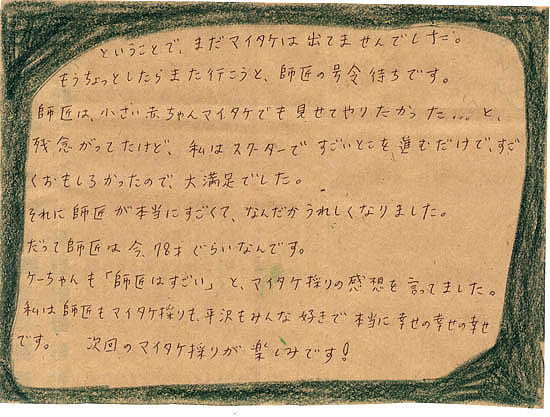 ということで、まだマイタケは出てませんでした。
もうちょっとしたらまた行こうと、師匠の号令待ちです。
師匠は、小さい赤ちゃんマイタケでも見せてやりたかった…と、
残念がってたけど、私はスクーターですごいとこを進むだけで、すご
くおもしろかったので、大満足でした。
それに師匠が本当にすごくて、なんだかうれしくなりました。
だって師匠は今、78才ぐらいなんです。
ケーちゃんも「師匠はすごい」と、マイタケ採りの感想を言ってました。
私は師匠もマイタケ採りも、平沢もみんな好きで本当に幸せの幸せの幸せ
です。 次回のマイタケ採りが楽しみです!